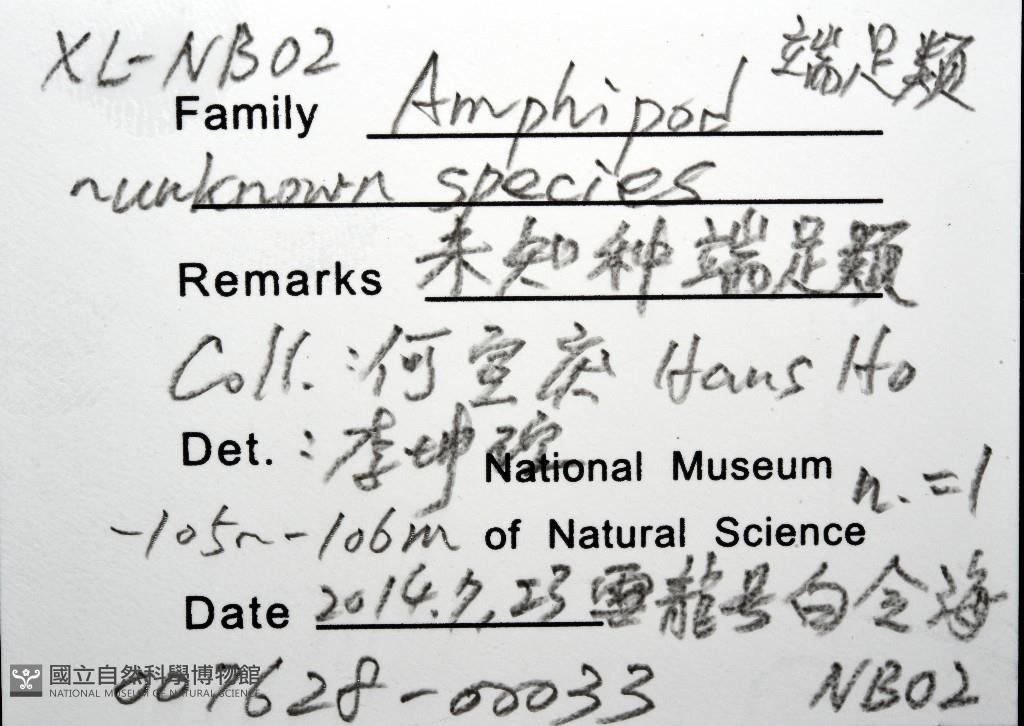 XL-NB02
Family Amphipod 端足類
~unknown species
Remarks 未知种端足類
Coll.:何宣庆 Hans Ho
Det.:李坤瑄
National Museum
n.=1
-105~-106m of Natural Science
Date 2014.7.23 雪龍号白令海
007628-00033 NB02
國立自然科學博物館
NATIONAL MUSEUM OF NATURAL SCIENCE